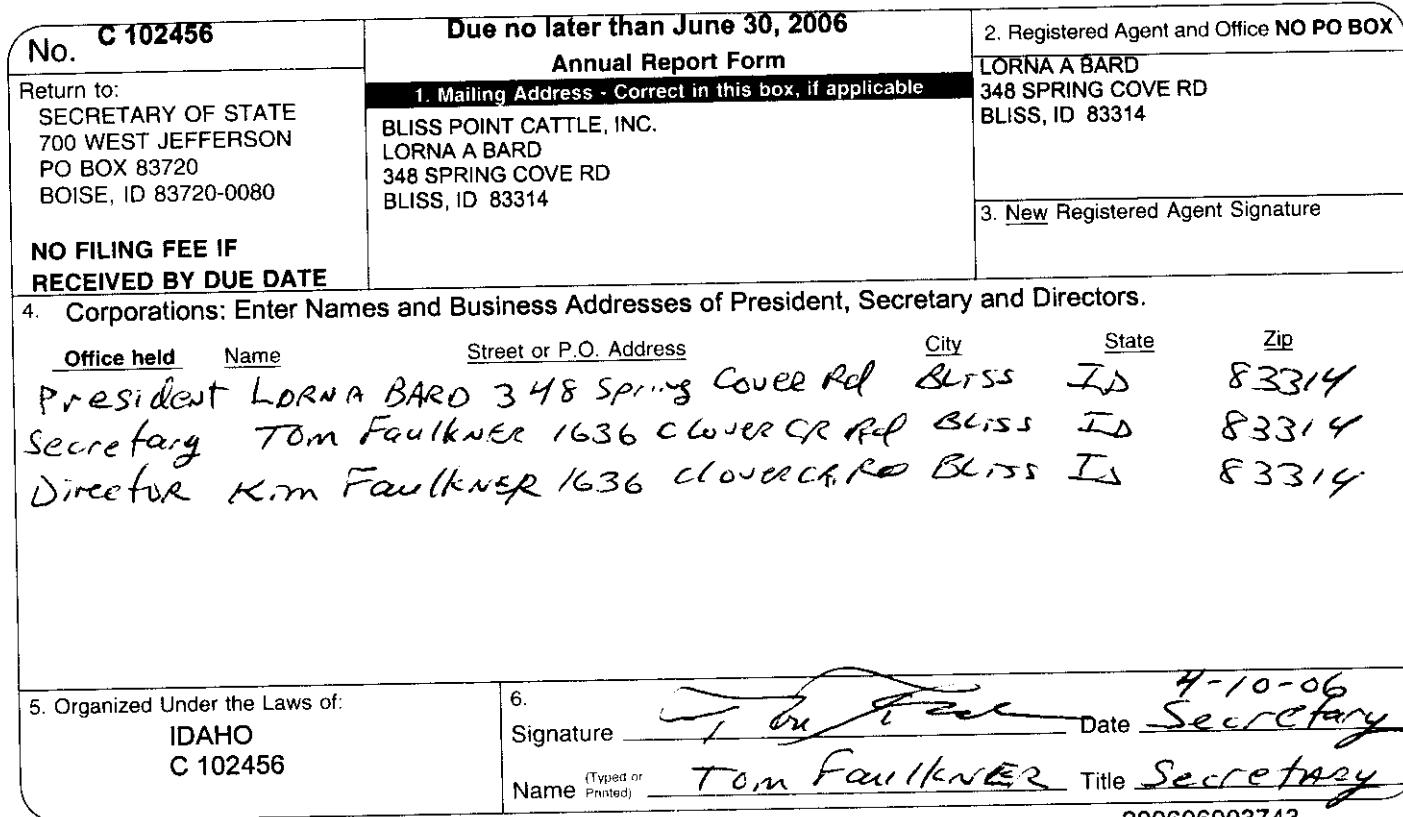 No. C 102456
Return to:
SECRETARY OF STATE
700 WEST JEFFERSON
PO BOX 83720
BOISE, ID 83720-0080
NO FILING FEE IF
RECEIVED BY DUE DATE
Due no later than June 30, 2006
Annual Report Form
1. Mailing Address - Correct in this box, if applicable
BLISS POINT CATTLE, INC.
LORNA A BARD
348 SPRING COVE RD
BLISS, ID 83314
2. Registered Agent and Office NO PO BOX
LORNA A BARD
348 SPRING COVE RD
BLISS, ID 83314
3. New Registered Agent Signature
4. Corporations: Enter Names and Business Addresses of President, Secretary and Directors.
Office held Name Street or P.O. Address City State Zip
President LORNA BARD 348 Spring Covee Rd BLISS ID 83314
Secretary Tom FaulkNER 1636 Clover CR Rd BLISS ID 83314
Director Kim FaulkNER 1636 Clover CR. RD BLISS ID 83314
5. Organized Under the Laws of:
IDAHO
C 102456
6.
4-10-06
Signature Date Secretary
Name (Typed or Printed) Tom FaulkNER Title Secretary